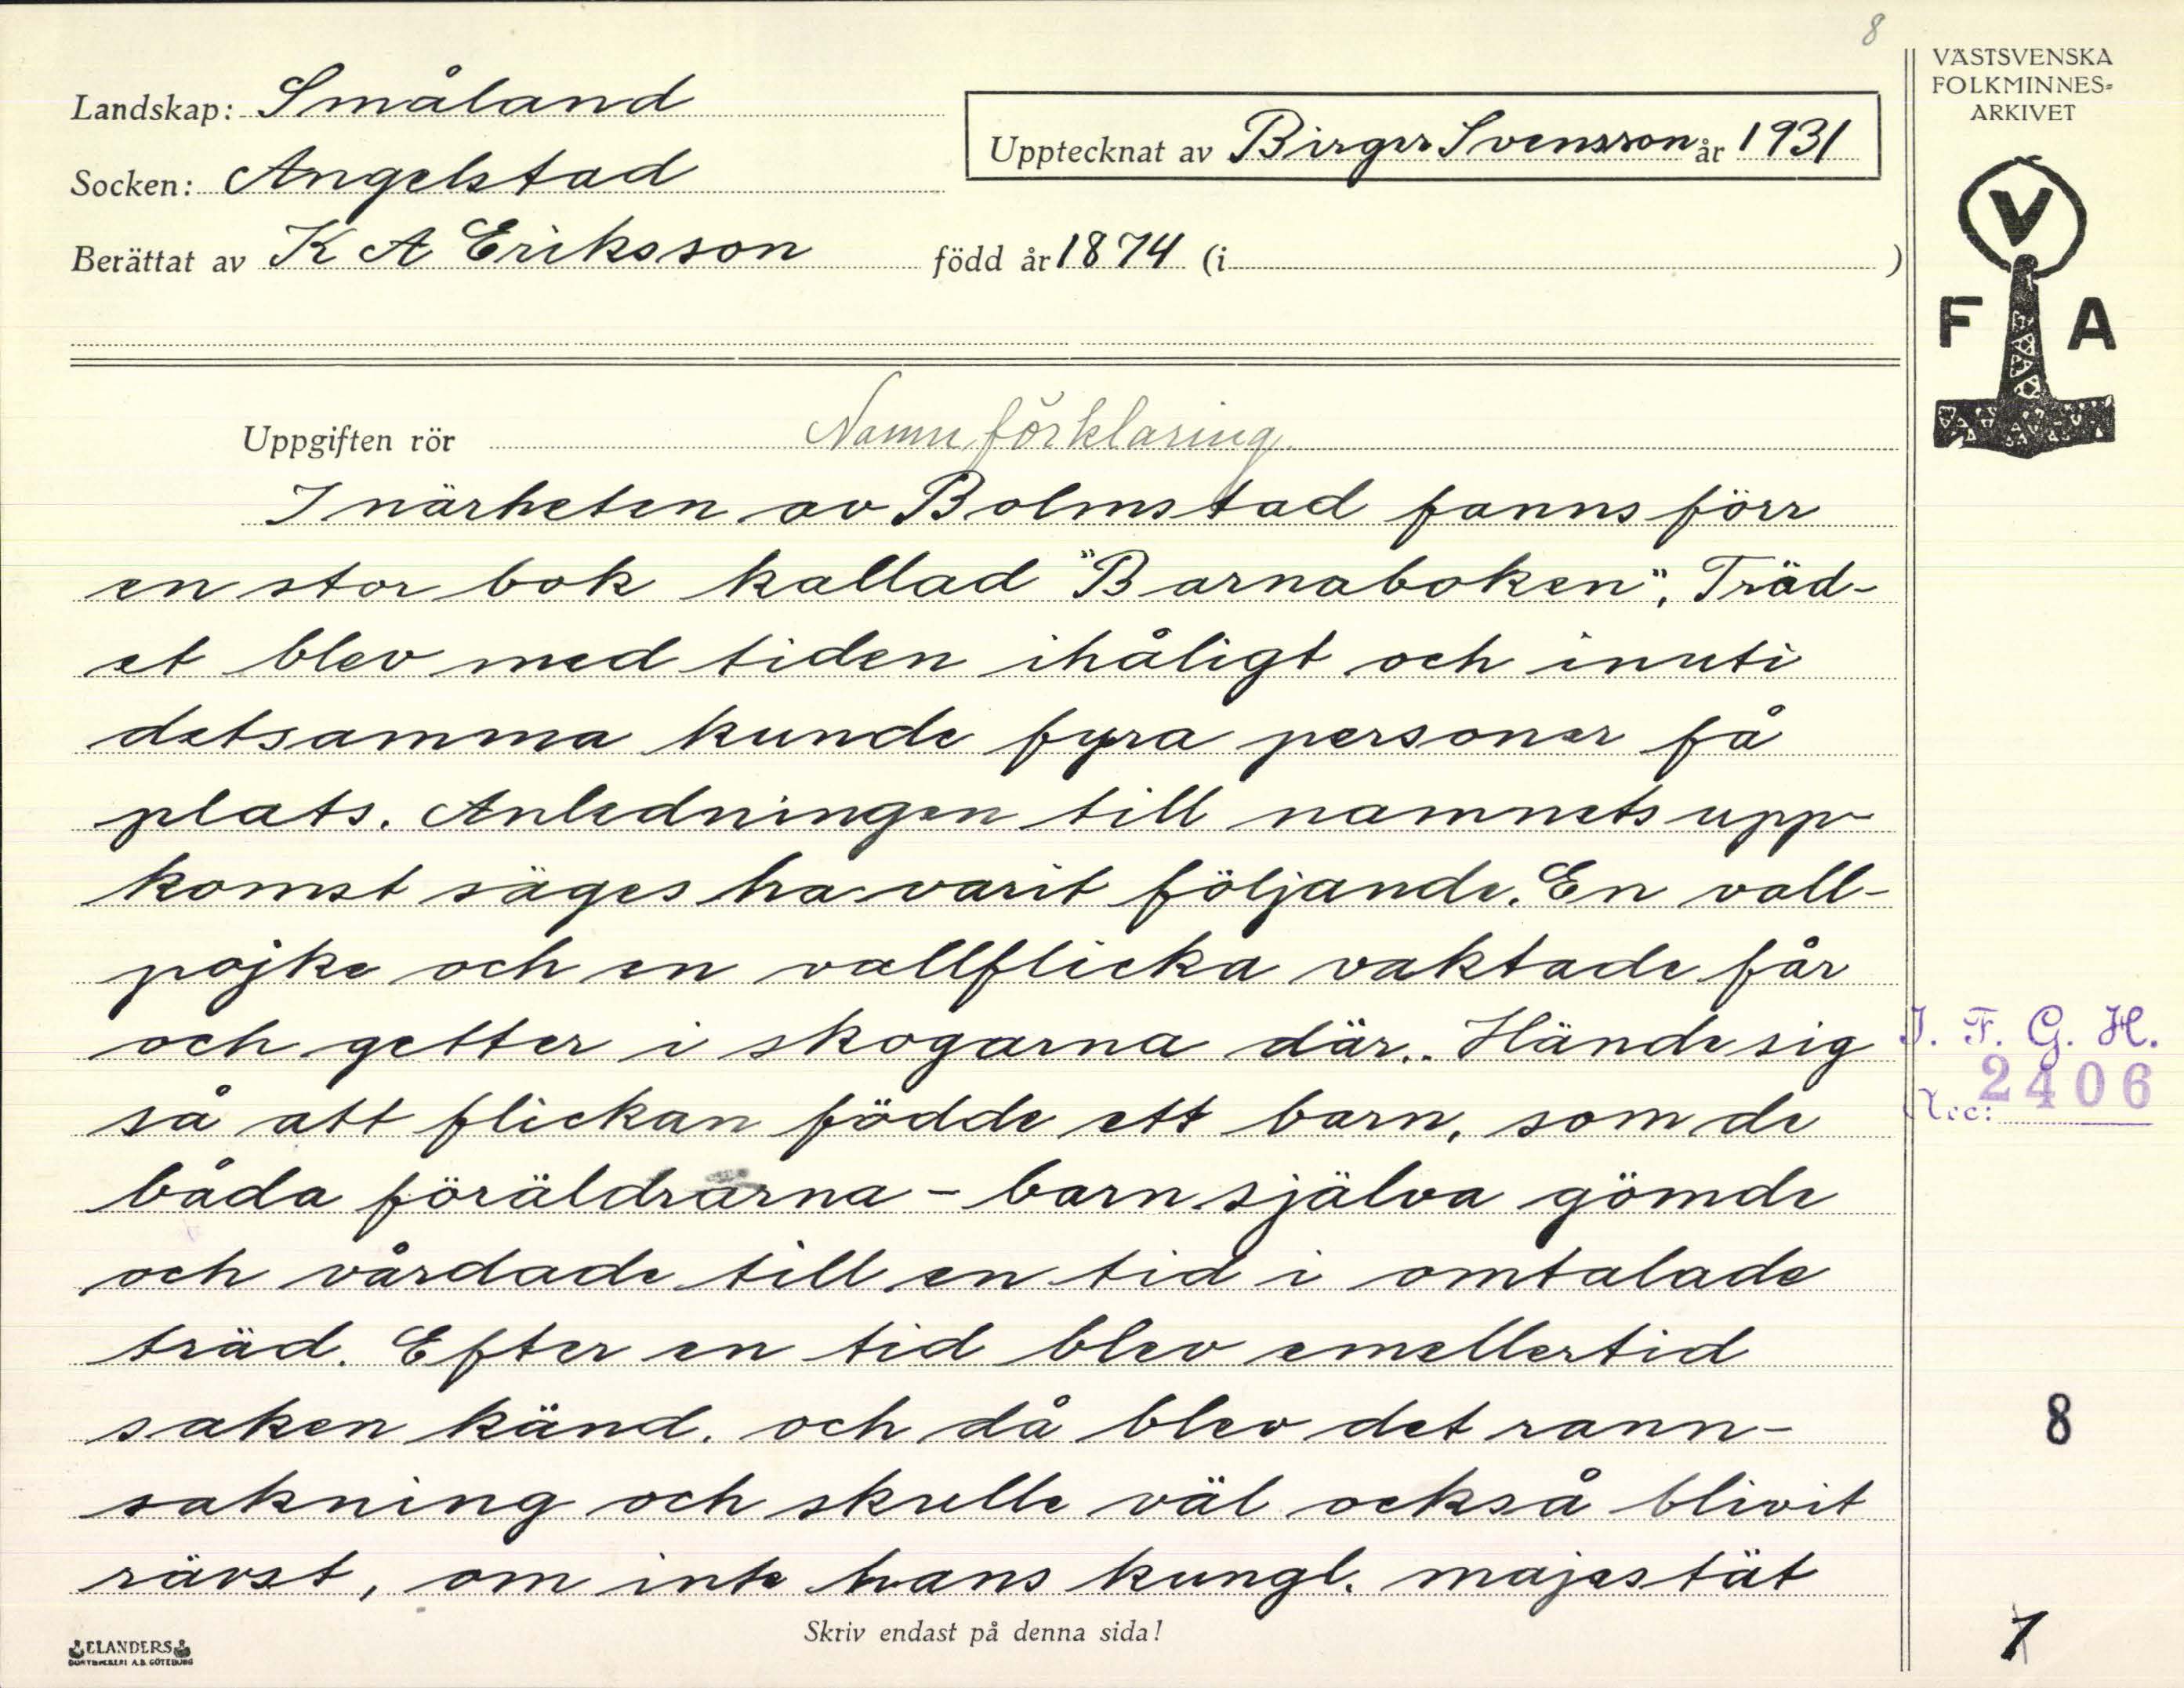 8
VÄSTSVENSKA
FOLKMINNES-
ARKIVET
Landskap: Småland
Upptecknat av Birger Svensson år 1931
Socken: Angelstad
Berättat av K A Eriksson född år 1874 (i )
V
F A
Uppgiften rör Namnförklaring.
I närheten av Bolmstad fanns förr
en stor bok kallad "Barnaboken". Träd-
et blev med tiden ihåligt och inuti
detsamma kunde fyra personer få
plats. Anledningen till namnets upp-
komst säges ha varit följande. En vall-
pojke och en vallflicka vaktade får
och getter i skogarna där.. Hände sig
så att flickan födde ett barn, som de
båda föräldrarna - barn själva gömde
och vårdade till en tid i omtalade
träd. Efter en tid blev emellertid
saken känd. och då blev det rann-
sakning och skulle väl också blivit
rävst, om inte hans kungl. majestät
I. F. G. H.
Acc: 2406
8
1
Skriv endast på denna sida!
ELANDERS
BOKTRYCKERI A.B. GÖTEBORG